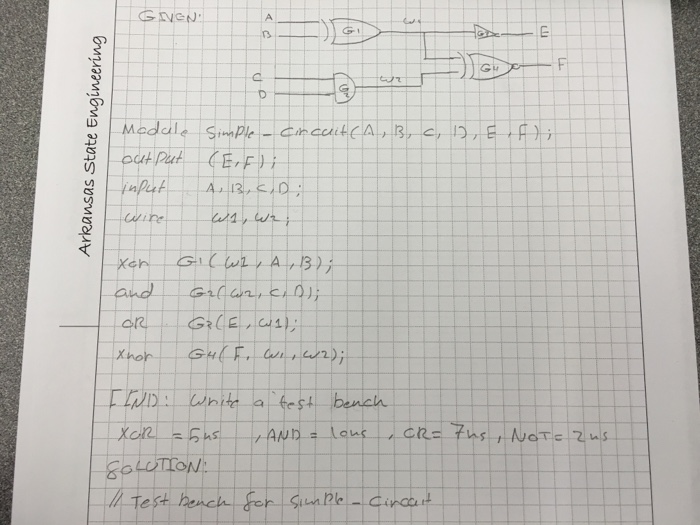 Arkansas State Engineering
GIVEN:
A
B
G1
W1
G3
E
C
D
G2
W2
G4
F
Module Simple-Circuit(A, B, C, D, E, F);
output (E, F);
input A, B, C, D;
wire W1, W2;
xor G1(W1, A, B);
and G2(W2, C, D);
OR G3(E, W1);
xnor G4(F, W1, W2);
FIND: Write a test bench
XOR = 5ns, AND = 10ns, OR = 7ns, NOT = 2ns
SOLUTION:
// Test bench for Simple-Circuit